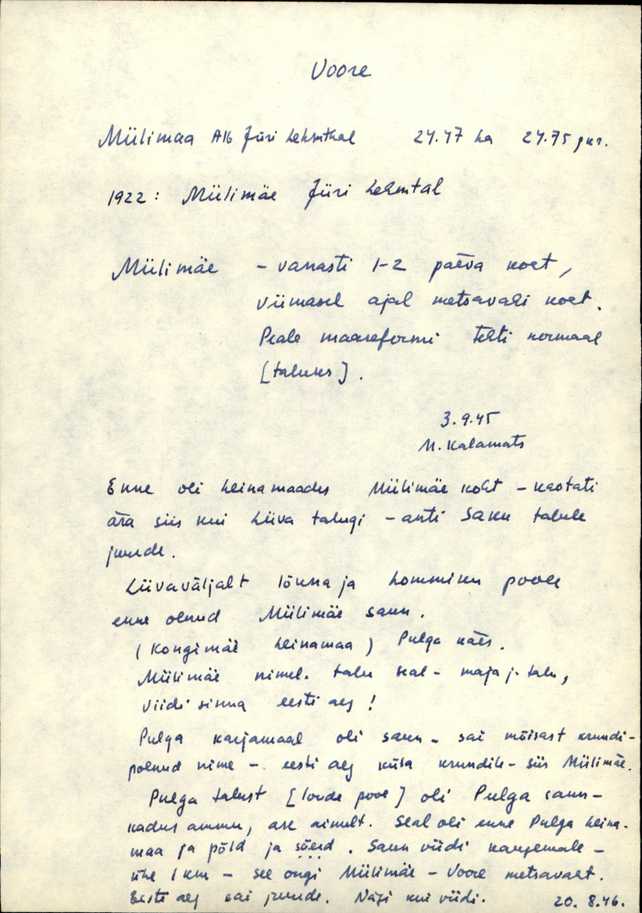 Voore
Miilimaa A16 Jüri Lehmthal 27.47 ha 27.75
1922: Miilimäe Jüri Lehmtal
Miilimäe - vanasti 1-2 päeva koht,
viimasel ajal metsavahi koht.
Peale maareformi tehti normaal
[taluks].
3.9.45
M. Kalamats
Enne oli heinamaadus Miilimäe koht - kaotati
ära siis kui Liiva talugi - anti Saku talule
juurde.
Liivaväljalt lõuna ja hommiku poole
enne olnud Miilimäe saun.
(Kongimäe heinamaa) Pulga käes.
Miilimäe nimel. talu seal - maja j. talu,
viidi sinna eesti aeg!
Pulga karjamaal oli saun - sai mõisast krundi -
polnud nime - eesti aeg küla krundile - siis Miilimäe.
Pulga talust [loode pool] oli Pulga saun -
kadus ammu, ase ainult. Seal oli enne Pulga heina-
maa ja põld ja sõeid. Saun viidi kaugemale -
ühe 1 km - see ongi Miilimäe - Voore metsavaht.
Eesti aeg sai juurde. Nägi kui viidi. 20.8.46.